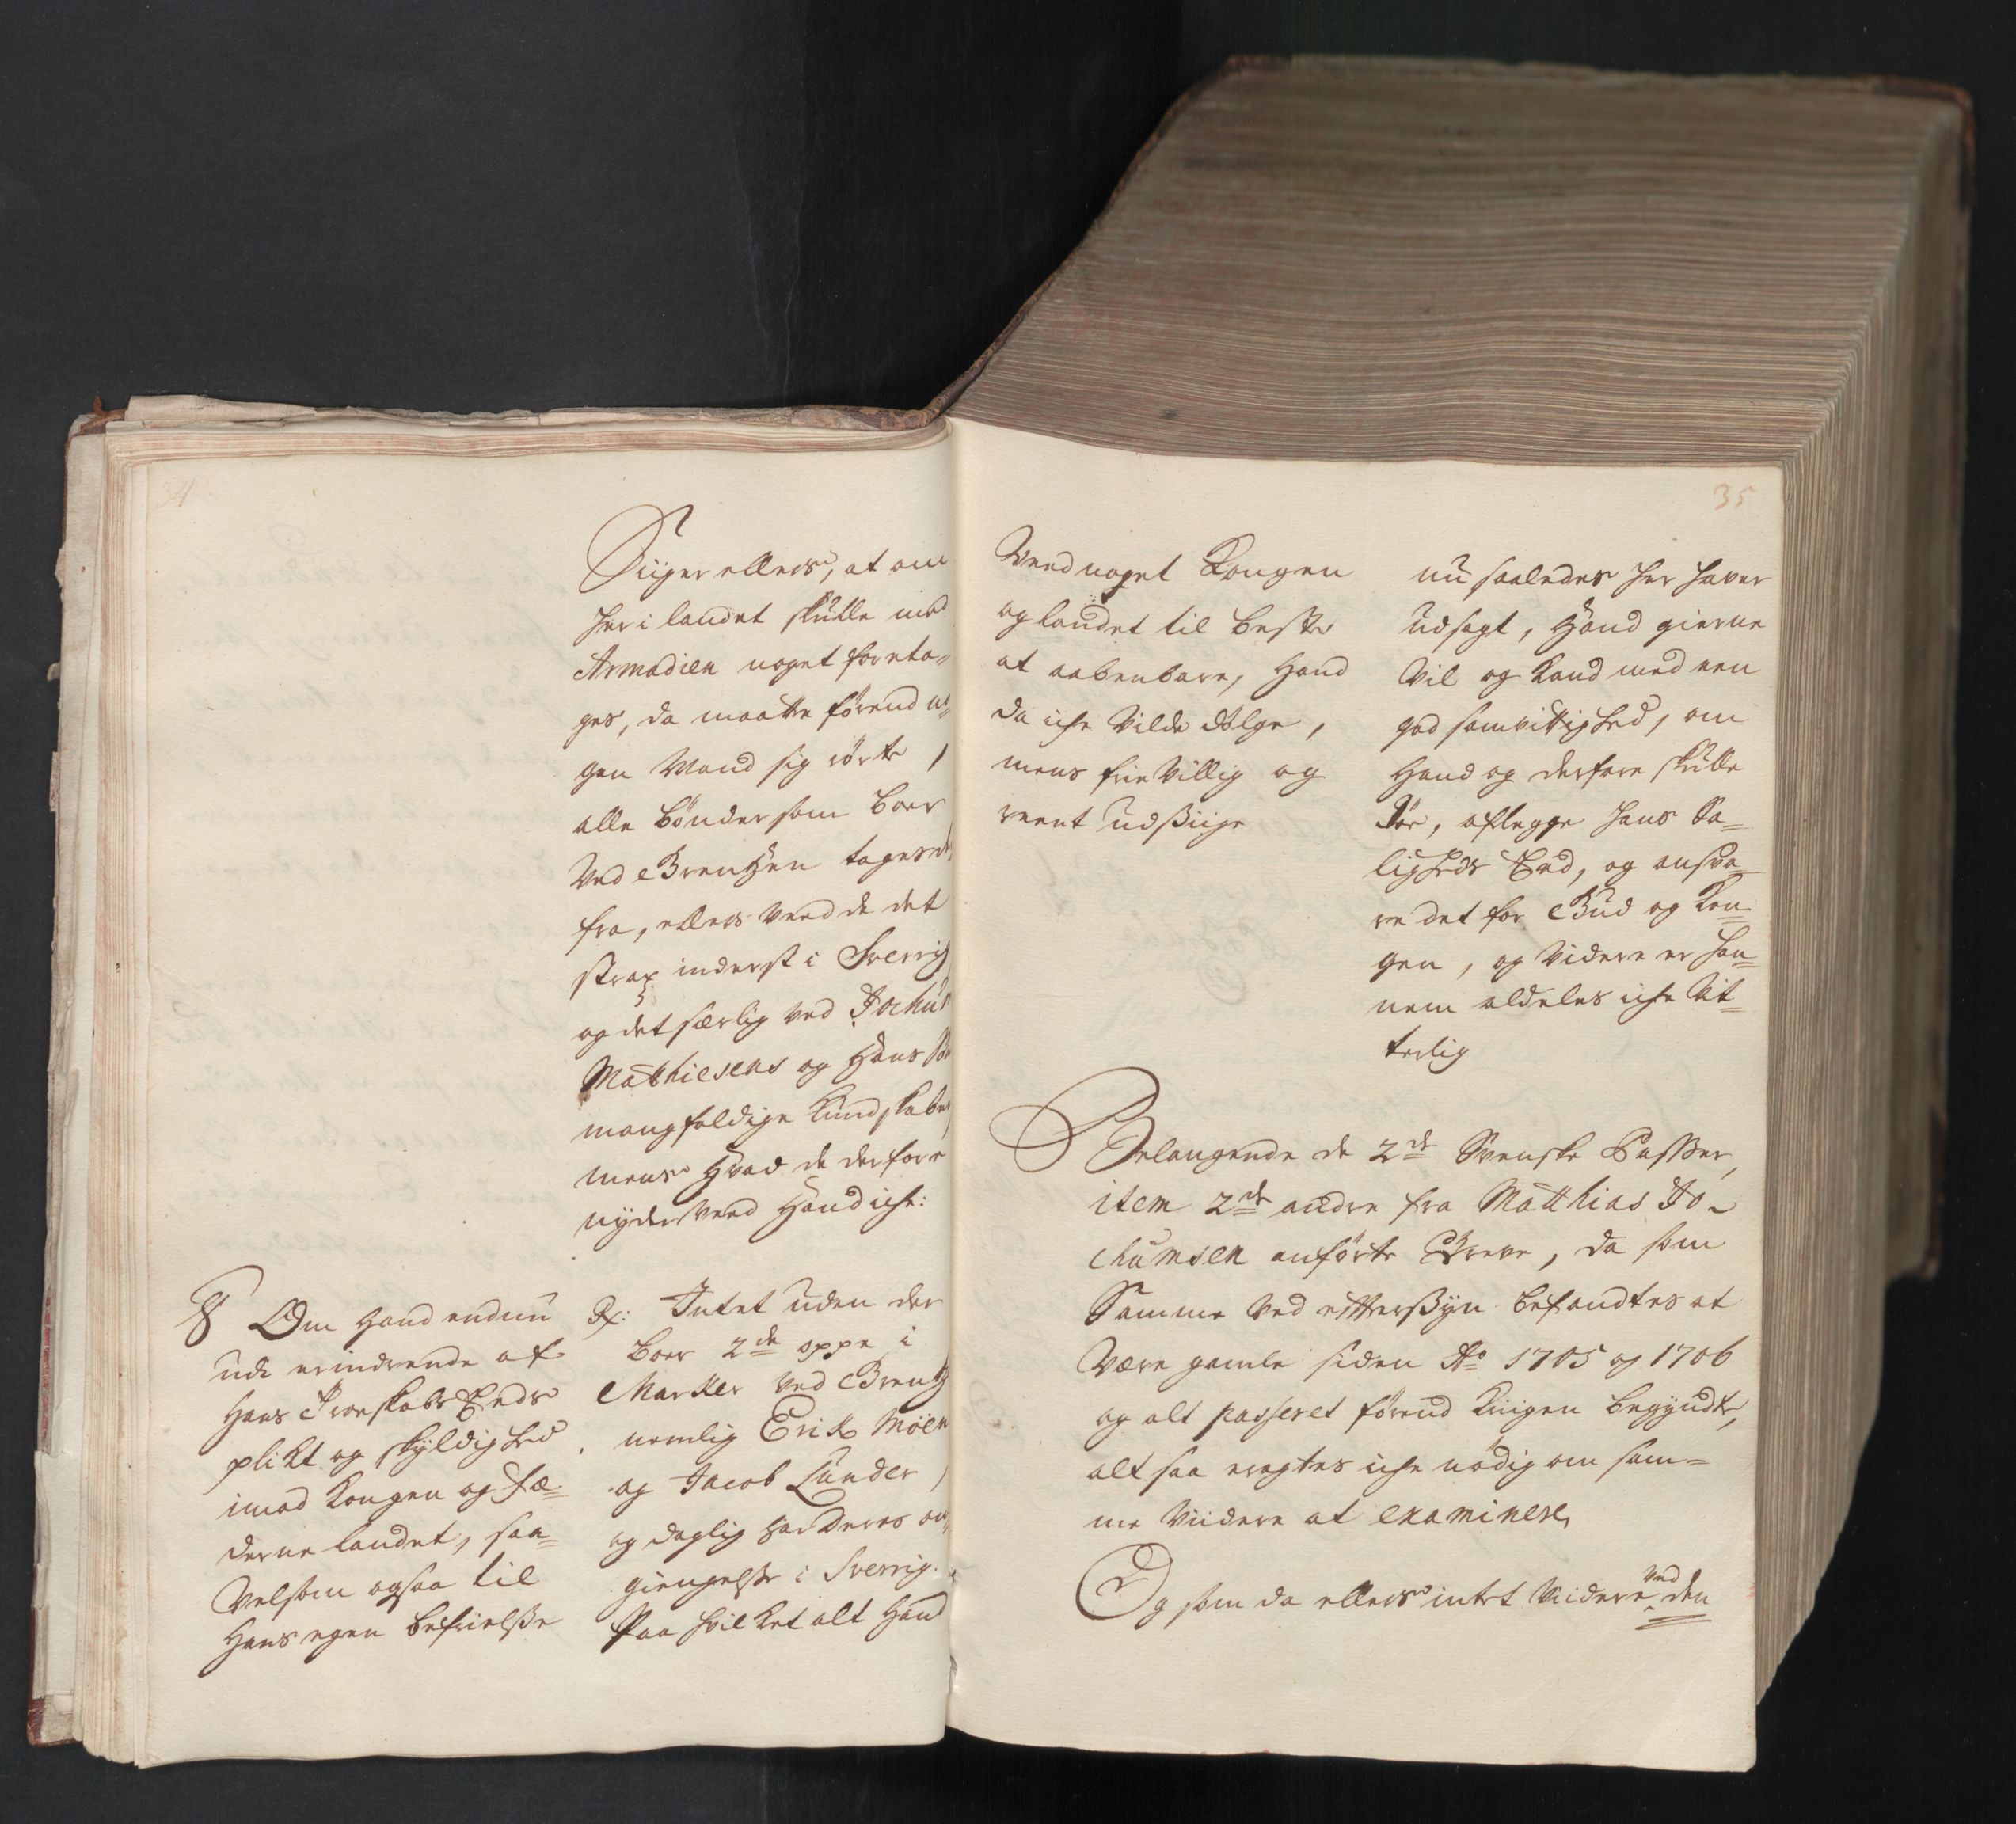 Siiger ellers, at om
her i landet skulle med
Armadien noget foreta-
ges, da maatte förend no-
gen Mand sig rörte,
alle bönder som boer
ved Grentzen tages der
fra, ellers veed de det
strax inderst i Sverrig
og det særlig ved Jochum
Matthiesens og Hans
mangfoldige Kundskaber
mens hvad de derfore
nyder veed Hand iche:
8 Om Hand endnu
ude erindrende af
Hans Troeskabs Eeds
plikt og skyldighed
imod Kongen og Fæ-
derne landet, saa-
velsom ogsaa til
Hans egen befrielsse
Rx: Intet uden der
boer 2de oppe i
Marker ved Grentz
nemlig Erik Moen
og Jacob Lunder,
og daglig har deres om-
giengelse i Sverrig.
Paa hvilket alt Hand
35
Veed noget Kongen
og landet til beste
at aabenbare, Hand
da iche vilde dölge,
mens frie villig og
reent udssiige
nu saaledes her haver
udsagt, Hand gierne
vil og kand med een
god samvittighed, om
Hand og derfore skulle
döe, aflegge hans Sa-
ligheds Eed, og ansva-
re det for Gud og Kon-
gen, og videre er han-
nem aldeles iche vit-
terlig
Belangende de 2de Svenske Passer,
item 2de andre fra Matthias Jo-
chumsen anförte Breve, da som
Samme ved efterssyn befandtes at
være gamle siden Ao 1705 og 1706
og alt passeret förend Kriigen begyndte,
alt saa eragtes iche nödig om sam-
me viidere at examinere,
Og som da ellers intet viidere ved den